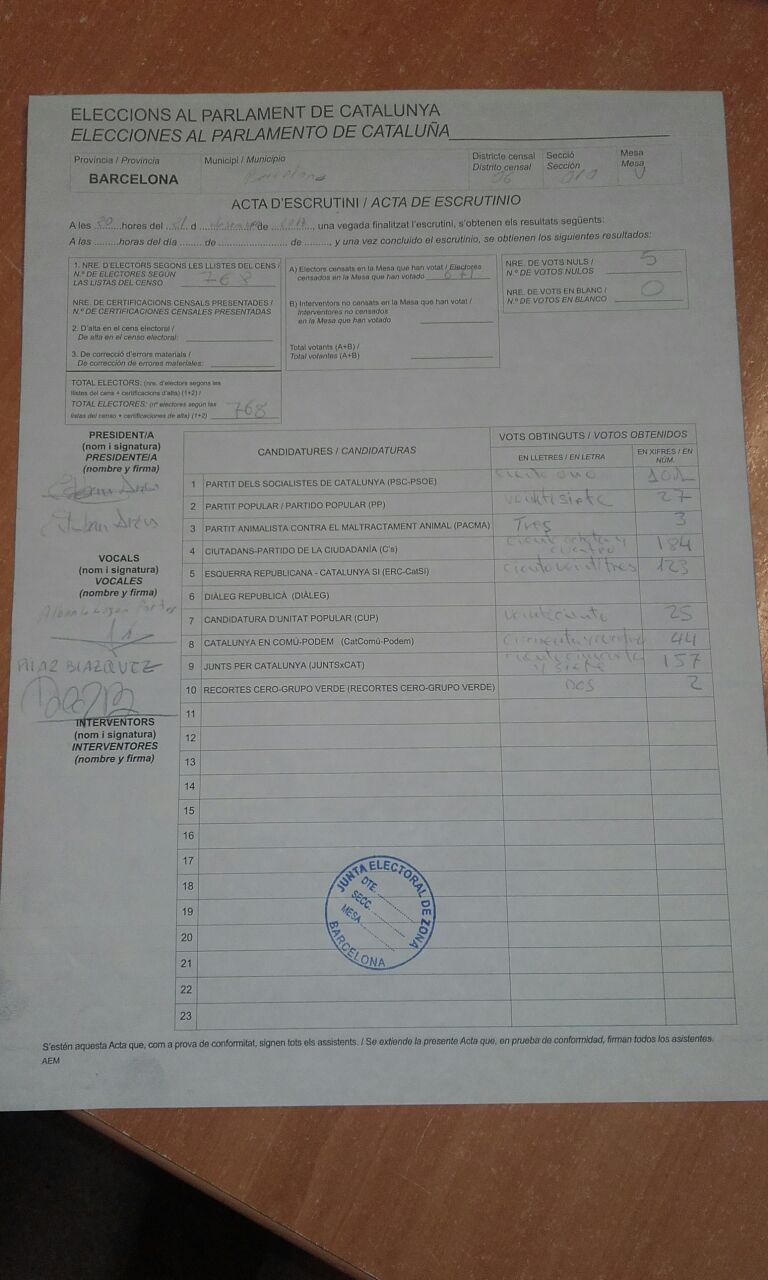 ELECCIONS AL PARLAMENT DE CATALUNYA
ELECCIONES AL PARLAMENTO DE CATALUÑA
Provincia / Provincia
BARCELONA
Municipi / Municipio
Barcelona
Districte censal
Distrito censal
06
Secció
Sección
Mesa
Mesa
U
ACTA D'ESCRUTINI / ACTA DE ESCRUTINIO
A les 20 hores del 21 d desembre de 2017, una vegada finalitzat l'escrutini, s'obtenen els resultats següents:
A las .........horas del día ...... de ....................... de ........., y una vez concluido el escrutinio, se obtienen los siguientes resultados:
1. NRE. D'ELECTORS SEGONS LES LLISTES DEL CENS /
N.º DE ELECTORES SEGÚN
LAS LISTAS DEL CENSO 768
NRE. DE CERTIFICACIONS CENSALS PRESENTADES /
N.º DE CERTIFICACIONES CENSALES PRESENTADAS
2. D'alta en el cens electoral /
De alta en el censo electoral:
3. De correcció d'errors materials /
De corrección de errores materiales:
TOTAL ELECTORS: (nre. d'electors segons les
llistes del cens + certificacions d'alta) (1+2) /
TOTAL ELECTORES: (nº electores según las
listas del censo + certificaciones de alta) (1+2) 768
A) Electors censats en la Mesa que han votat / Electores
censados en la Mesa que han votado 671
B) Interventors no censats en la Mesa que han votat /
Interventores no censados
en la Mesa que han votado
Total votants (A+B) /
Total votantes (A+B)
NRE. DE VOTS NULS /
N.º DE VOTOS NULOS 5
NRE. DE VOTS EN BLANC /
N.º DE VOTOS EN BLANCO 0
PRESIDENT/A
(nom i signatura)
PRESIDENTE/A
(nombre y firma)
VOCALS
(nom i signatura)
VOCALES
(nombre y firma)
PILAR BLAZQUEZ
INTERVENTORS
(nom i signatura)
INTERVENTORES
(nombre y firma)
CANDIDATURES / CANDIDATURAS
VOTS OBTINGUTS / VOTOS OBTENIDOS
EN LLETRES / EN LETRA
EN XIFRES / EN NÚM.
1 PARTIT DELS SOCIALISTES DE CATALUNYA (PSC-PSOE) ciento uno 101
2 PARTIT POPULAR / PARTIDO POPULAR (PP) veintisiete 27
3 PARTIT ANIMALISTA CONTRA EL MALTRACTAMENT ANIMAL (PACMA) Tres 3
4 CIUTADANS-PARTIDO DE LA CIUDADANÍA (C's) ciento ochenta y cuatro 184
5 ESQUERRA REPUBLICANA - CATALUNYA SI (ERC-CatSI) ciento veintitres 123
6 DIÀLEG REPUBLICÀ (DIÀLEG)
7 CANDIDATURA D'UNITAT POPULAR (CUP) veinticinco 25
8 CATALUNYA EN COMÚ-PODEM (CatComú-Podem) 44
9 JUNTS PER CATALUNYA (JUNTSxCAT) ciento cincuenta y siete 157
10 RECORTES CERO-GRUPO VERDE (RECORTES CERO-GRUPO VERDE) DOS 2
11
12
13
14
15
16
17
18
19
20
21
22
23
JUNTA ELECTORAL DE ZONA
DTE.
SECC.
MESA
BARCELONA
S'estén aquesta Acta que, com a prova de conformitat, signen tots els assistents. / Se extiende la presente Acta que, en prueba de conformidad, firman todos los asistentes.
AEM